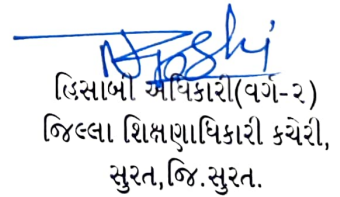 Joshi
હિસાબી અધિકારી(વર્ગ-૨)
જિલ્લા શિક્ષણાધિકારી કચેરી,
સુરત,જિ.સુરત.